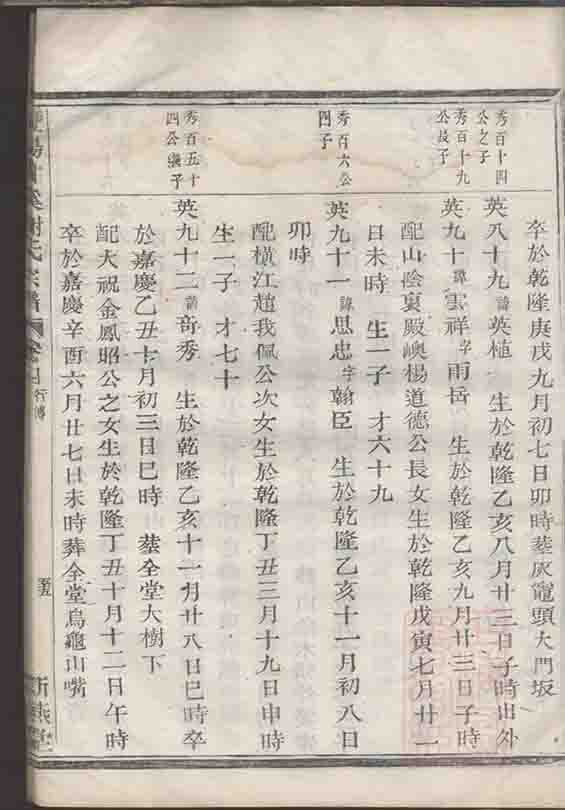 卒於乾隆庚戌九月初七日卯時塟灰竈頭大門坂
秀百十四
公之子
英八十九 諱英植 生於乾隆乙亥八月廿三日子時出外
秀百十九
公長子
英九十 諱雲祥 字雨岳 生於乾隆乙亥九月廿三日子時
配山陰裏殿嶴楊道德公長女生於乾隆戊寅七月廿一
日未時 生一子 才六十九
秀百六公
四子
英九十一 諱思忠 字翰臣 生於乾隆乙亥十一月初八日
卯時
配橫江趙我佩公次女生於乾隆丁丑三月十九日申時
生一子 才七十
秀百五十
四公張子
英九十二 諱奇秀 生於乾隆乙亥十一月廿八日巳時卒
於嘉慶乙丑十月初三日巳時 塟全堂大樹下
配大祝金鳳昭公之女生於乾隆丁丑十月十二日午時
卒於嘉慶辛酉六月廿七日未時葬全堂烏龜山嘴
謝氏宗譜 行傳